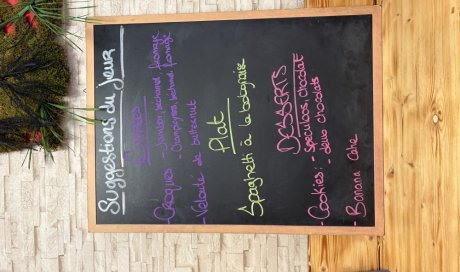 Suggestions du jour
Entrées
- Croques : - Jambon, bechamel, fromage
- Champignons, bechamel, fromage
- Velouté de butternut
Plat
Spaghetti à la bolognaise
DESSERTS
- Cookies : - speculoos, chocolat
- deux chocolats
- Banana Cake